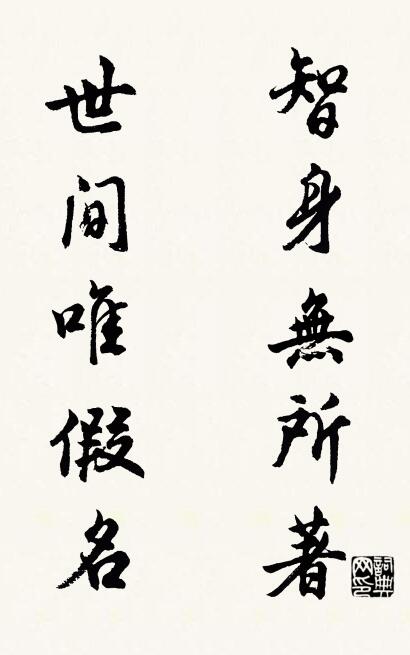 智身無所著
世間唯假名
詞典
网印